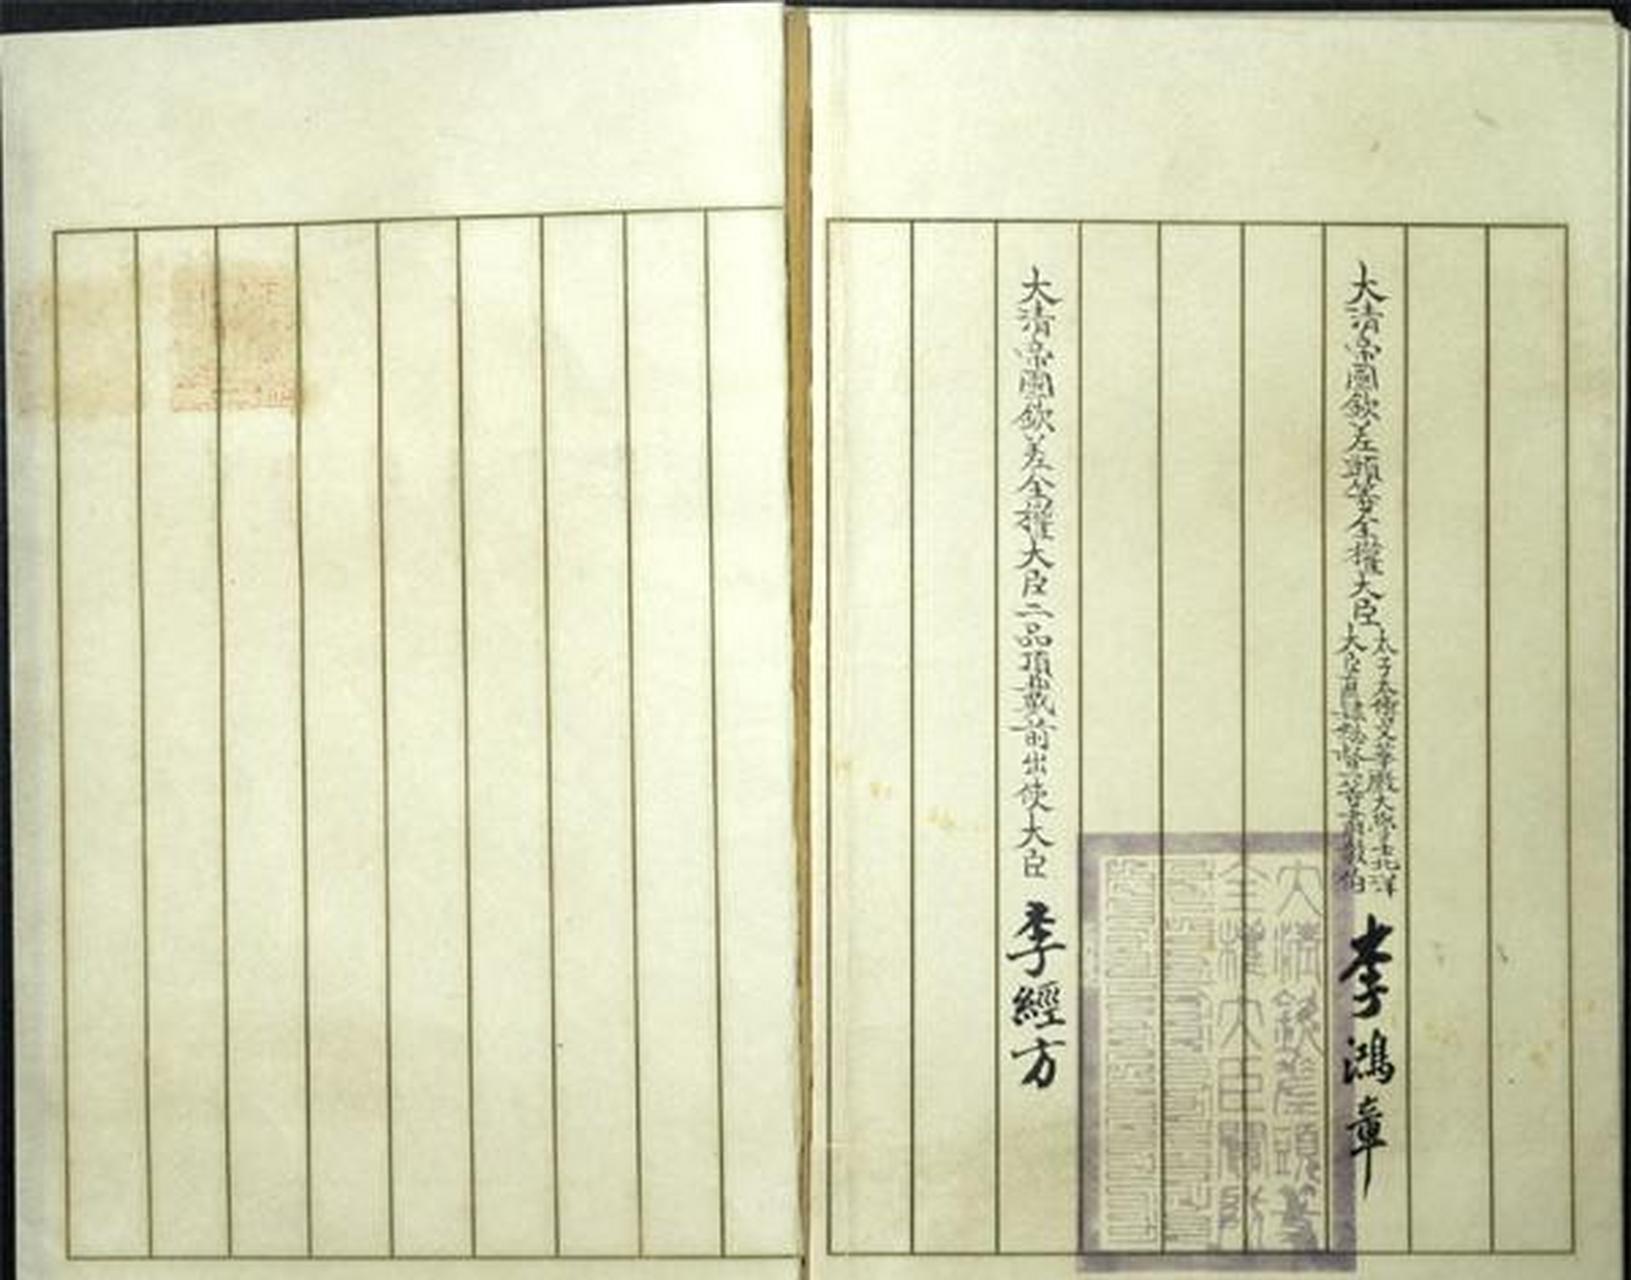 大清帝國欽差頭等全權大臣
太子太傅文華殿大學士北洋
大臣直隸總督一等肅毅伯
李鴻章
大清帝國欽差全權大臣二品頂戴前出使大臣
李經方
大清欽差頭等
全權大臣關防